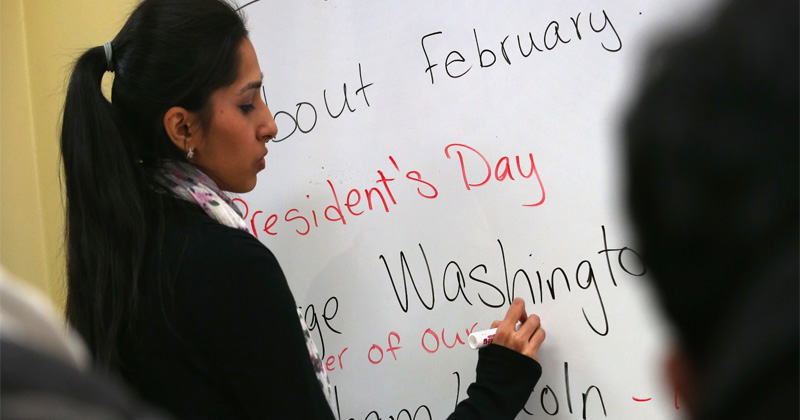 about February.
President's Day
George Washington
er of our
ham Lincoln -